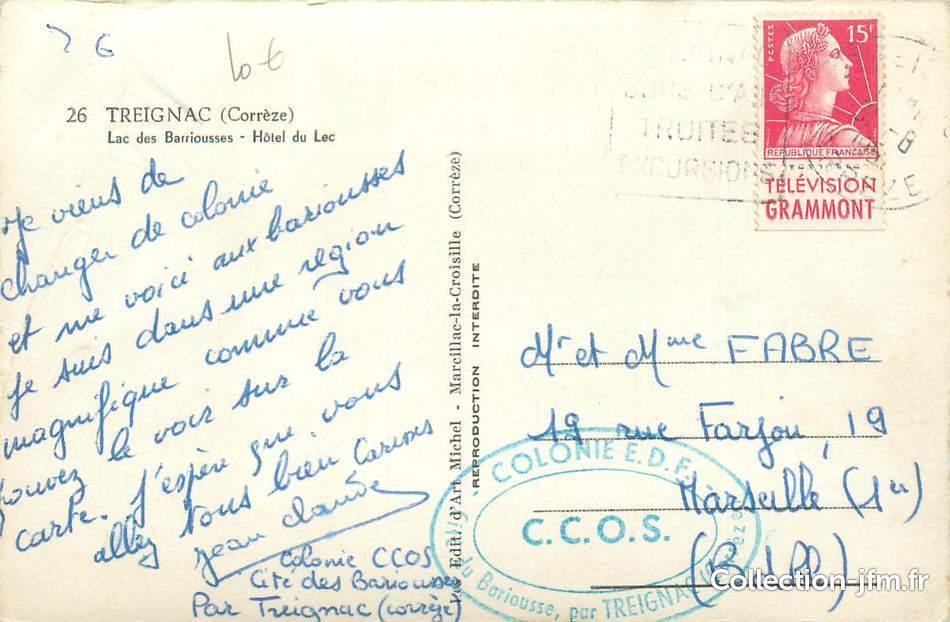 26 TREIGNAC (Corrèze)
Lac des Barriousses - Hôtel du Lec
Je viens de
changer de colonie
et me voici aux bariousses
Je suis dans une région
magnifique comme vous
pouvez le voir sur la
carte. J'espère que vous
allez tous bien
jean claude
Colonie CCOS
Cité des Bariousses
Par Treignac (corrèze)
Les Edit. d'Art Michel - Marcillac-la-Croisille (Corrèze)
REPRODUCTION INTERDITE
TRUITES
EXCURSIONS
POSTES
15F
REPUBLIQUE FRANÇAISE
TÉLÉVISION
GRAMMONT
Mr et Mme FABRE
19 rue Farjou, 19
Marseille (1er)
(B. du R.)
COLONIE E.D.F.
C.C.O.S.
du Bariousse, par TREIGNAC
Collection-jfm.fr